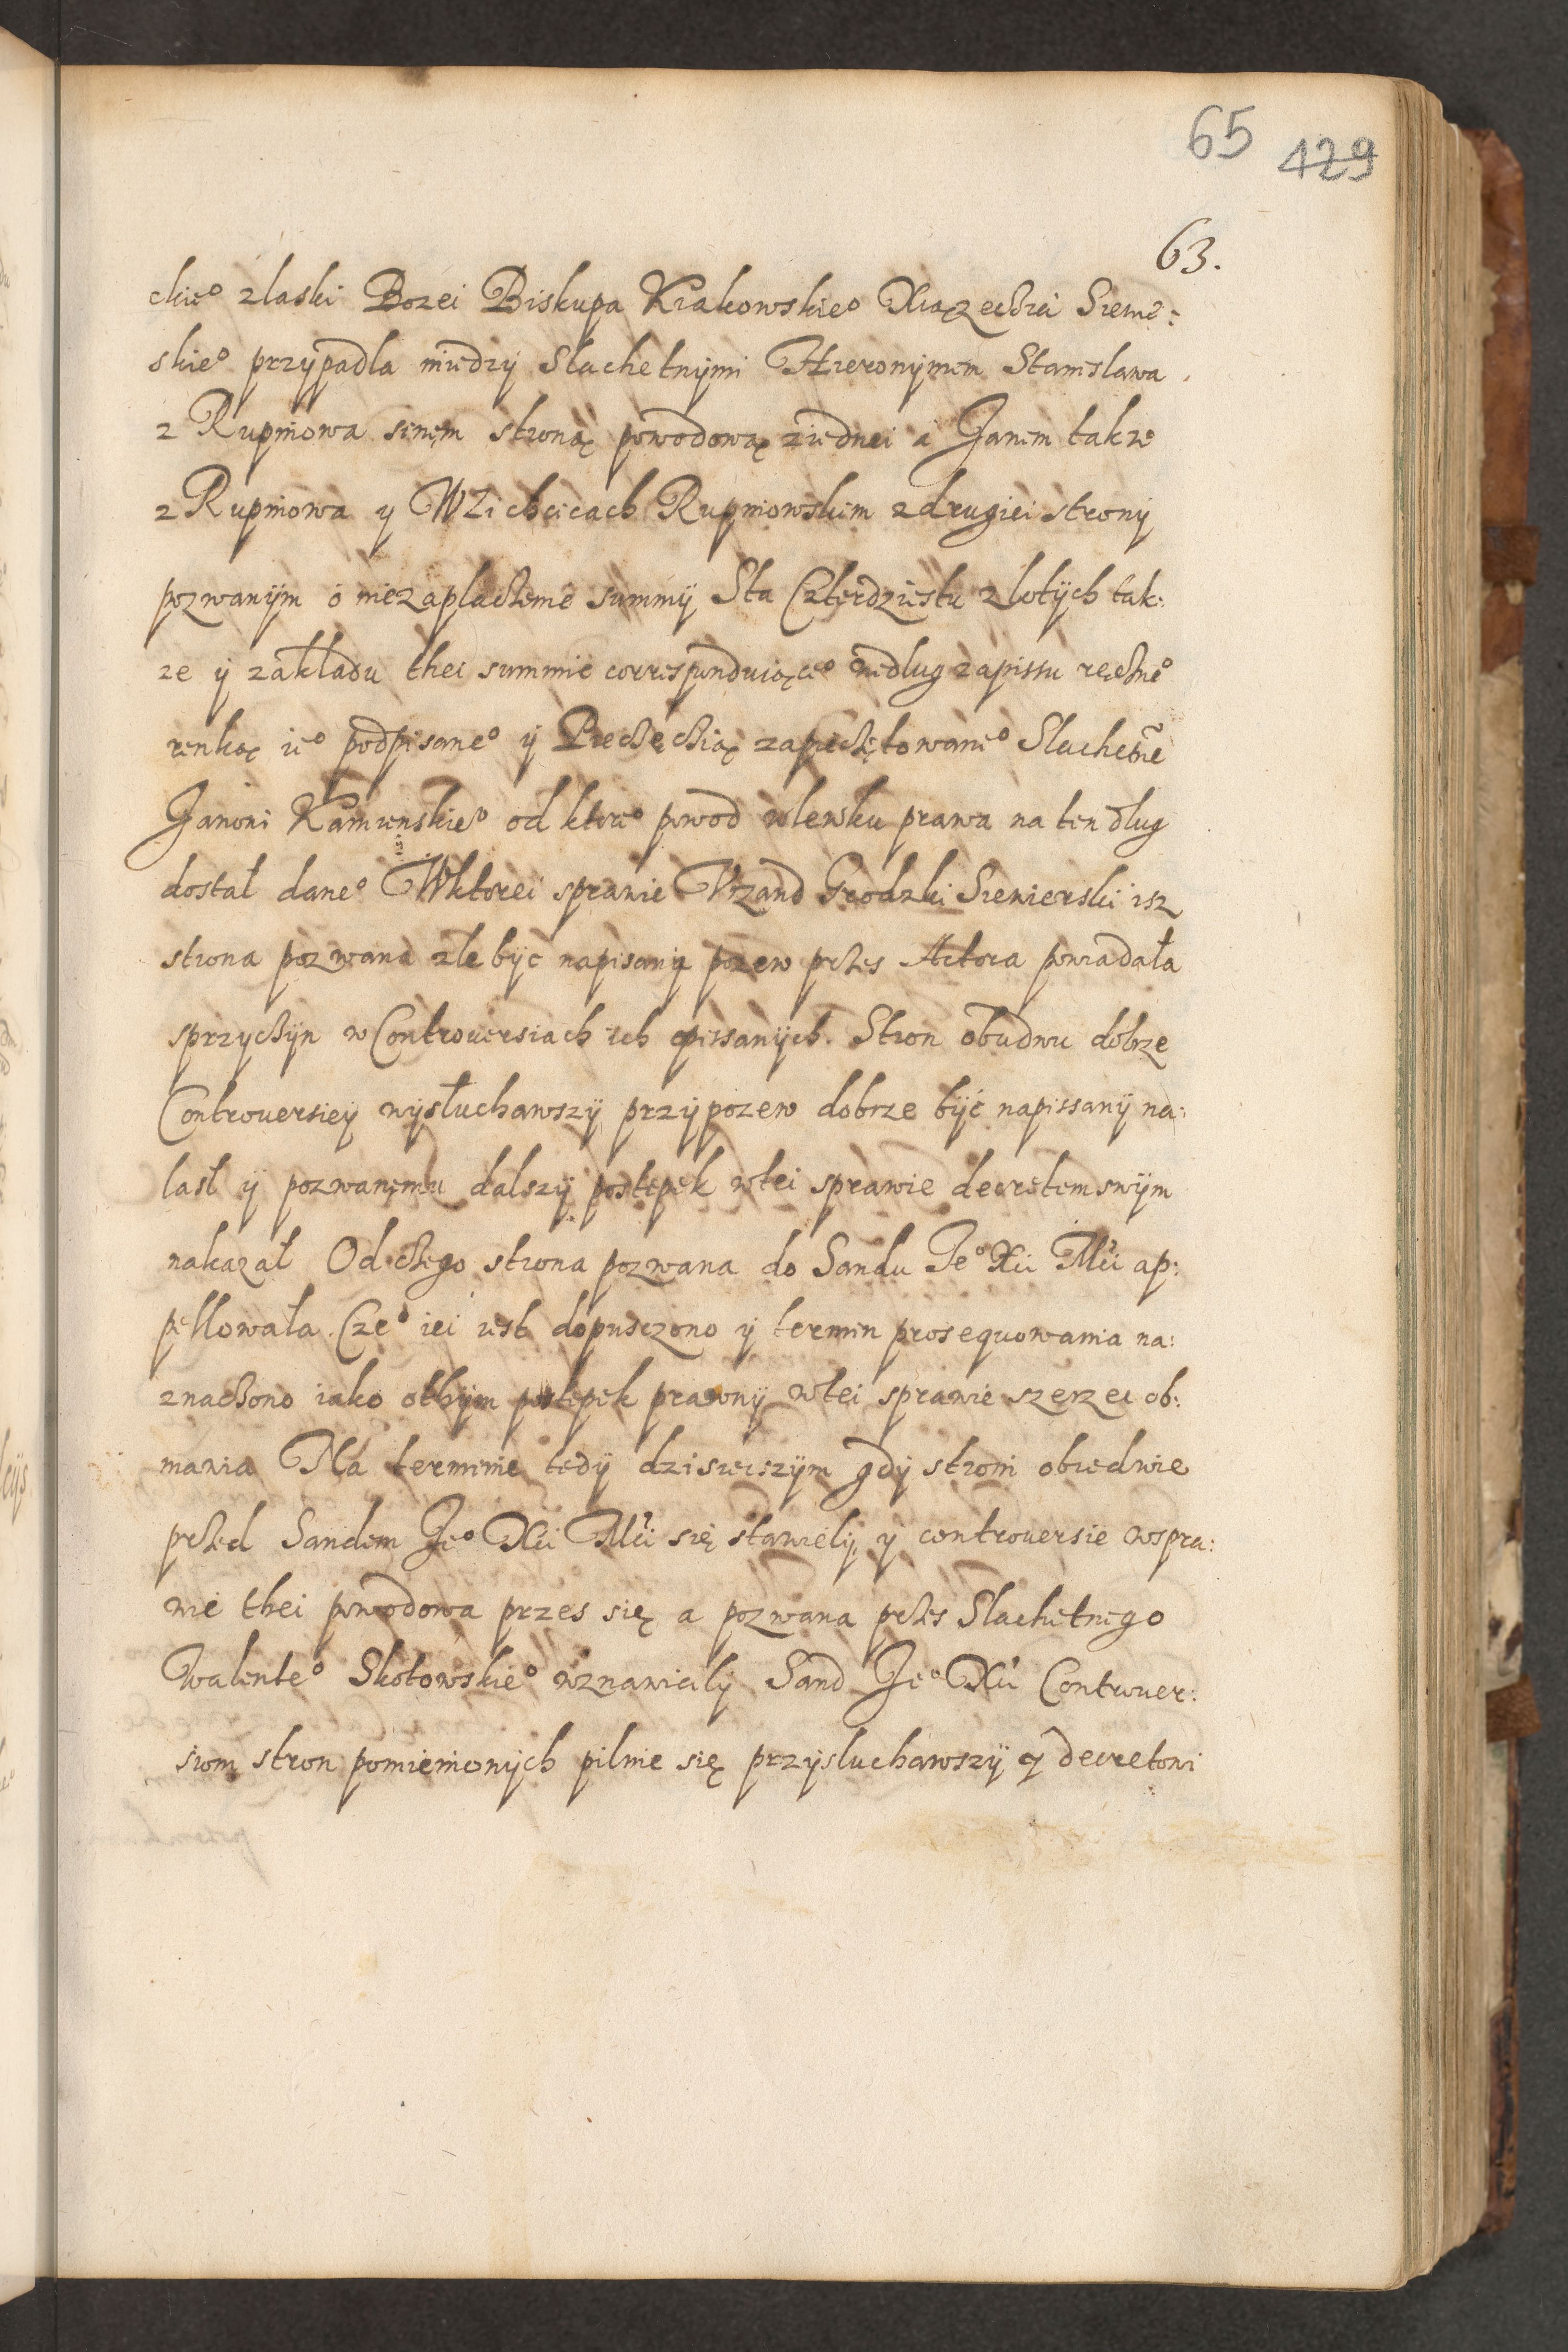 65 429
63.
ckie° zlaski Bozei Biskupa Krakowskie° Xiązechia Siewe:
skie° przypadla miedzy Slachetnymi Hieronymem Stanislawa
z Rupniowa sinem stroną powodową ziednei a Janem takze
z Rupniowa y WZichcicach Rupniowskim zdrugiei strony
pozwanym o niezaplacheme summy Sta Czterdziestu zlotych tak:
ze y zakładu thei summie correspunduiące° wedlug zapissu rechne°
renką ie° podpisane° y Piechęchią zapiechętowane° Slachetne
Janoni Kamienskie° od ktore° powod wlewku prawa na ten dlug
dostał dane° Wktorei sprawie Vrzand Grodzki Siewierski isz
strona pozwana zle być napisany pozew przes Actora powiadała
sprzychyn w Controuersiach ich opissanych. Stron obudwu dobrze
Controuersiey wysłuchawszy przypozew dobrze być napissany na:
lasł y pozwanemu dalszy postepek wtei sprawie decretem swym
nakazał Od chego strona pozwana do Sandu Je° Xci Mci ap:
pellowała. Cze° iei iest dopusczono y termin prosequowania na:
znachono iako othym postepek prawny wtei sprawie szerzei ob:
mawia Na terminie tedy dzisieiszym gdy stroni obiedwie
przed Sandem Je° Xci Mci się stawiely y controuersie wspra:
wie thei powodowa przes się a pozwana przes Slachetnego
Walente° Skotowskie° wznawiely Sand Je° Xci Controuer:
siom stron pomienionych pilnie się przysluchawszy y decretowi